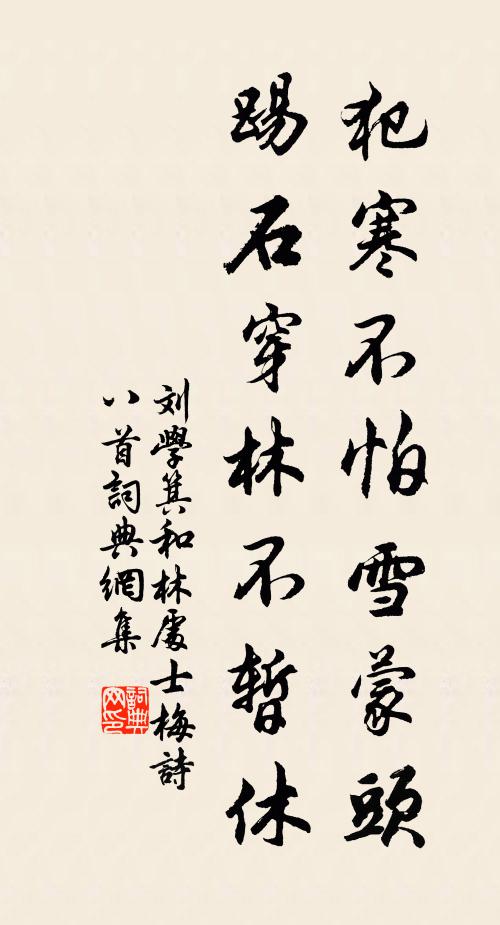 犯寒不怕雪蒙頭
踢石穿林不暫休
刘學箕和林處士梅詩
八首詞典網集
詞典
网印